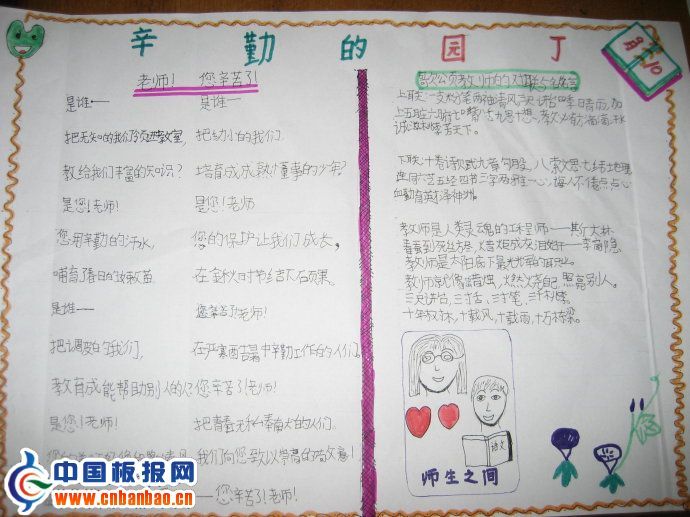 辛勤的园丁
9月10
老师! 您辛苦了!
是谁——
把无知的我们领进教室,
教给我们丰富的知识?
是您!老师!
您用辛勤的汗水,
哺育了春日的
是谁——
把调皮的我们,
教育成能帮助别人的
是您!老师!
是谁——
把幼小的我们.
培育成成熟懂事的少年?
是您!老师
您的保护让我们成长,
在金秋时节结下硕果。
您辛苦了!老师!
在严寒酷暑中辛勤工作的人们
您辛苦了!老师!
把青春无私奉献的人们.
我们向您致以崇高的敬意!
——您辛苦了!老师!
歌颂教师的对联与名言
上联:一支粉笔两袖清风三尺讲台四季晴雨,加
上五脏六腑七嘴八舌九思十想,教必有方滴滴汗水
诚滋桃李芳天下。
下联:十卷诗赋九章勾股,八索文思七纬地理
连同六艺五经四书三字两雅一心诲人不倦点点心
血勤育英才泽神州
教师是人类灵魂的工程师——斯大林
春蚕到死丝方尽,蜡炬成灰泪始干——李商隐
教师是太阳底下最光辉的职业。
教师就像蜡烛,燃烧自己,照亮别人。
三尺讲台,三寸舌,三寸笔,三千桃李。
十年树木,十载风,十载雨,十万栋梁。
语文
师生之间
中国板报网
www.cnbanbao.cn